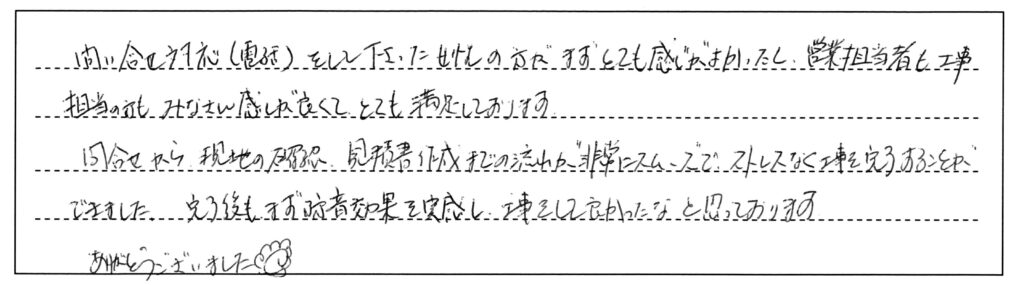 問い合せ対応(電話)をして下さった女性の方が まずとても感じがよかったし、営業担当者も工事
担当の方も みなさん感じが良くて とても 満足しております
問合せから 現地の確認、見積書作成までの流れが 非常にスムーズで、ストレスなく工事を完了することが
できました 完了後も まず防音効果を実感し、工事をして良かったな と思っております
ありがとうございました